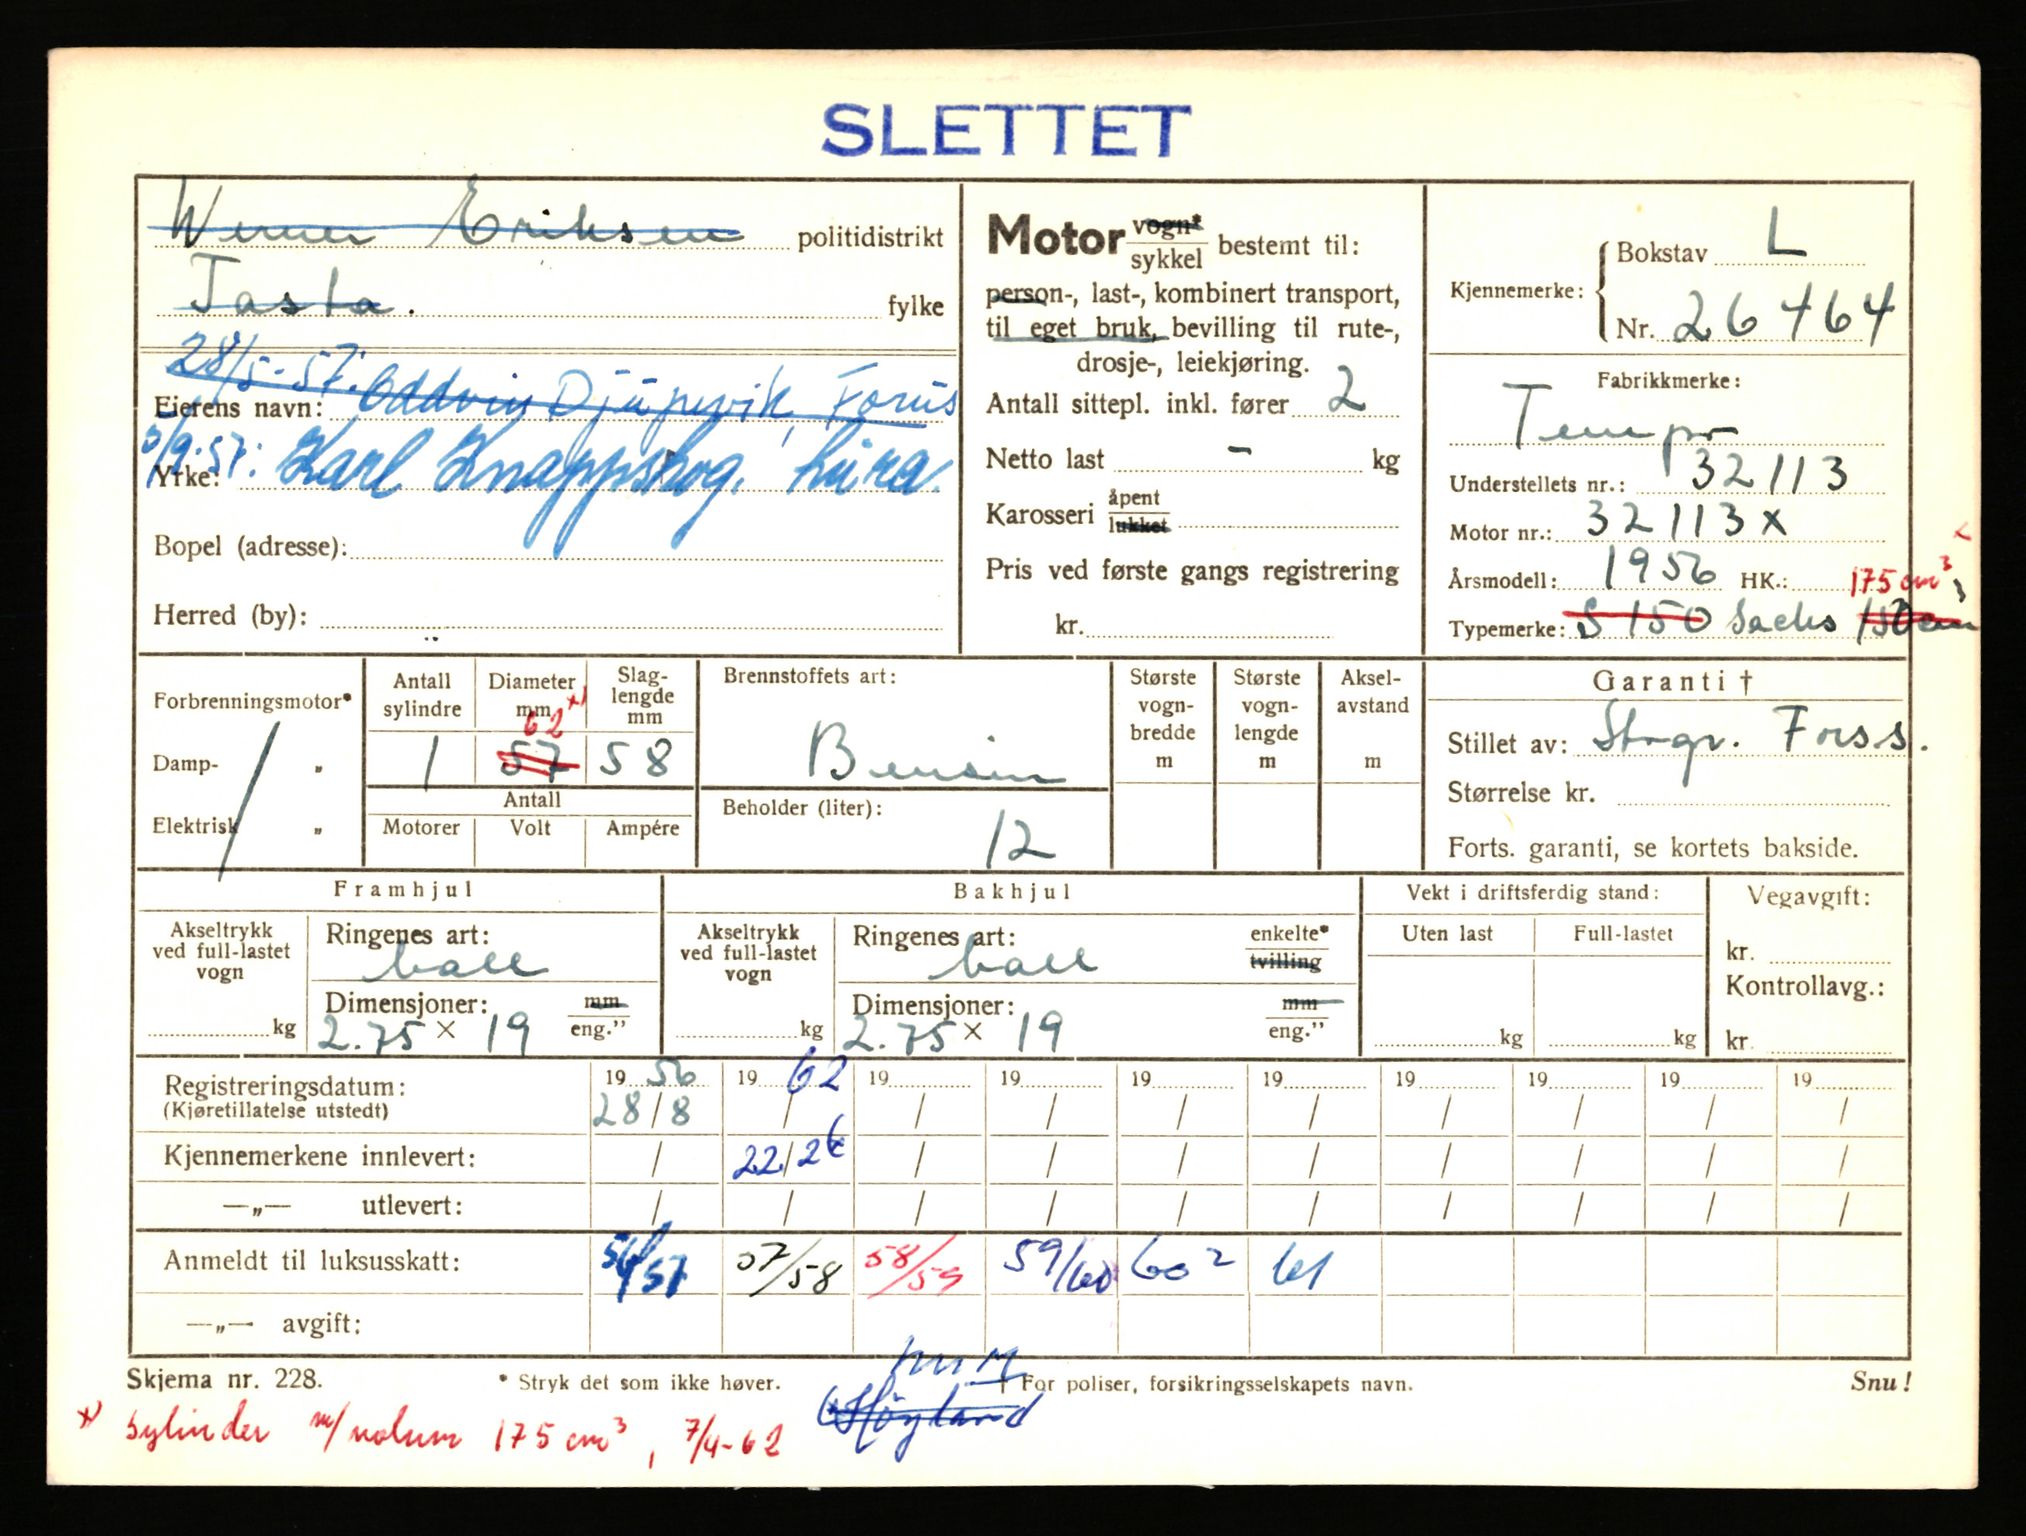 SLETTET
Werner Eriksen politidistrikt
Tasta. fylke
28/5-57. Oddvin Djupevik, Forus
Eierens navn:
5/9-57: Karl Knappskog. Lura.
Yrke:
Bopel (adresse):
Herred (by):
Motor vogn* / sykkel bestemt til:
person-, last-, kombinert transport,
til eget bruk, bevilling til rute-,
drosje-, leiekjøring.
Antall sittepl. inkl. fører 2
Netto last - kg
Karosseri åpent / lukket
Pris ved første gangs registrering
kr.
Kjennemerke: Bokstav L
Nr. 26464
Fabrikkmerke:
Tempo
Understellets nr.: 32113
Motor nr.: 32113 x
Årsmodell: 1956 HK.: 175 cm³ x
Typemerke: S 150 Sachs 150 cm³
Forbrenningsmotor*
Damp- „
Elektrisk „
Antall sylindre 1
Diameter mm 62 x) 57
Slaglengde mm 58
Antall
Motorer Volt Ampére
Brennstoffets art:
Bensin
Beholder (liter):
12
Største vognbredde m
Største vognlengde m
Akselavstand m
Garanti †
Stillet av: Storgr. Forss.
Størrelse kr.
Forts. garanti, se kortets bakside.
Framhjul
Akseltrykk ved full-lastet vogn kg
Ringenes art: ball
Dimensjoner: mm / eng."
2.75 x 19
Bakhjul
Akseltrykk ved full-lastet vogn kg
Ringenes art: ball enkelte* / tvilling
Dimensjoner: mm / eng."
2.75 x 19
Vekt i driftsferdig stand:
Uten last Full-lastet
kg kg
Vegavgift:
kr.
Kontrollavg.:
kr.
Registreringsdatum: 19 56 19 62 19 19 19 19 19 19 19 19
(Kjøretillatelse utstedt) 28/8 / / / / / / / / /
Kjennemerkene innlevert: / 22/2 / / / / / / / /
—„— utlevert: / / / / / / / / / /
Anmeldt til luksusskatt: 56/57 57/58 58/59 59/60 60² 61
—„— avgift:
Skjema nr. 228. * Stryk det som ikke høver. † For poliser, forsikringsselskapets navn. Snu!
x) Sylinder m/volum 175 cm³, 7/4-62
Høyland